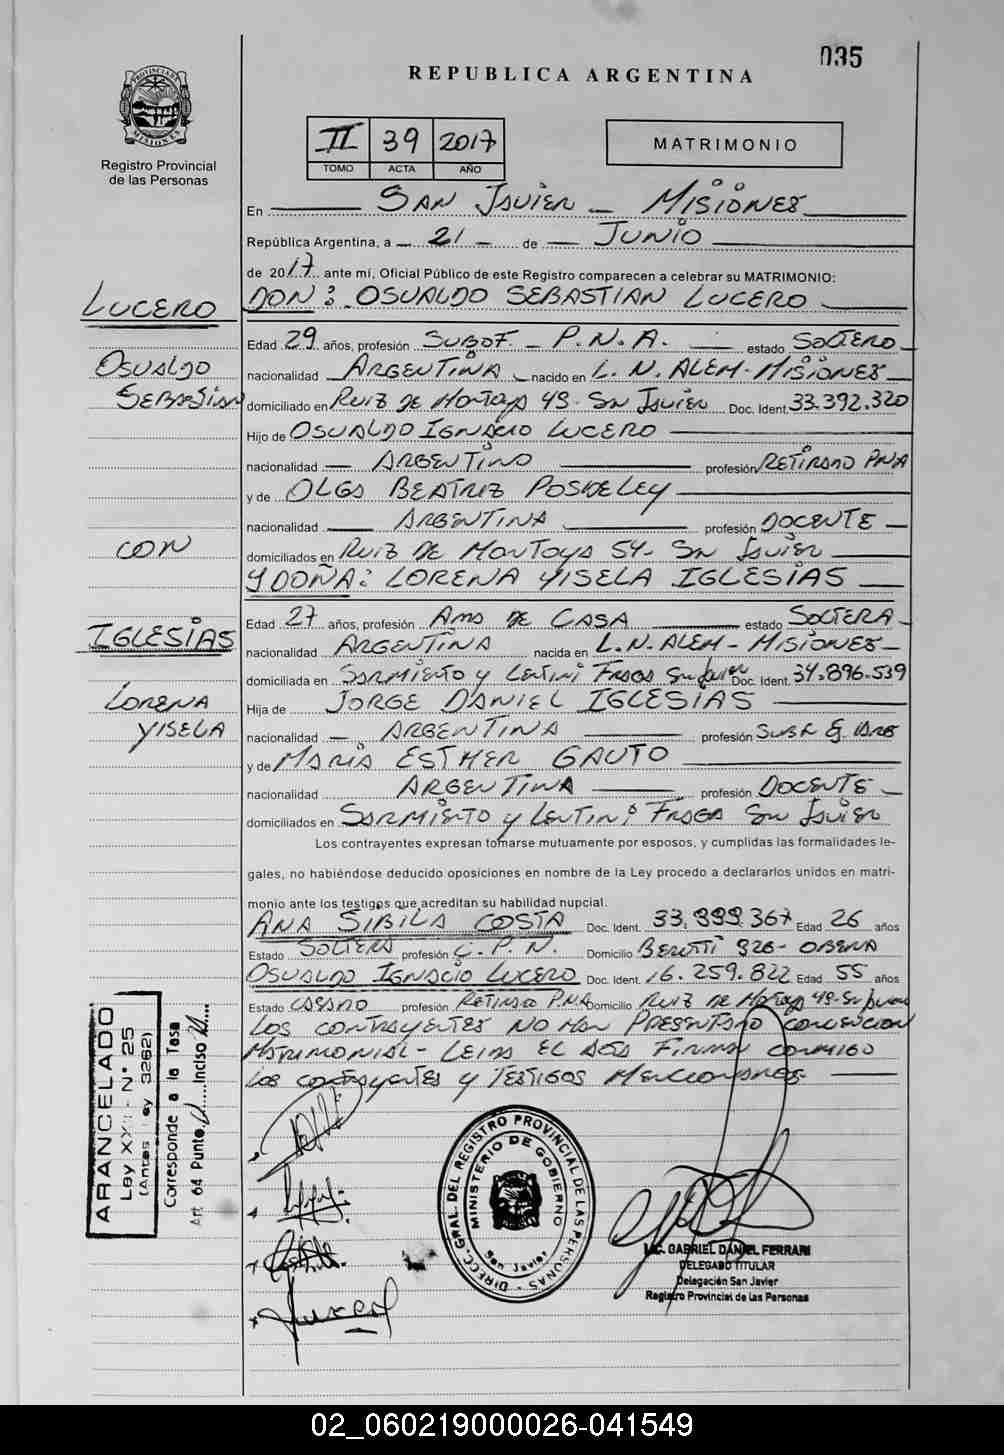 035
REPUBLICA ARGENTINA
PROVINCIA DE MISIONES
Registro Provincial
de las Personas
II 39 2017
TOMO ACTA AÑO
MATRIMONIO
En SAN JAVIER - MISIONES
República Argentina, a 21 de JUNIO
de 2017 ante mí, Oficial Público de este Registro comparecen a celebrar su MATRIMONIO:
LUCERO
DON: OSVALDO SEBASTIAN LUCERO
Edad 29 años, profesión SUBOF. - P.N.A. estado SOLTERO
OSVALDO
nacionalidad ARGENTINA nacido en L.N. ALEM - MISIONES
SEBASTIAN
domiciliado en RUIZ DE MONTOYA 49 - SN JAVIER Doc. Ident. 33.392.320
Hijo de OSVALDO IGNACIO LUCERO
nacionalidad ARGENTINO profesión RETIRADO PNA
y de OLGA BEATRIZ POSDELEY
nacionalidad ARGENTINA profesión DOCENTE
CON
domiciliados en RUIZ DE MONTOYA 54 - SN JAVIER
Y DOÑA: LORENA YISELA IGLESIAS
Edad 27 años, profesión AMA DE CASA estado SOLTERA
IGLESIAS
nacionalidad ARGENTINA nacida en L.N. ALEM - MISIONES
domiciliada en SARMIENTO y LENTINI FRAGA SN JAVIER Doc. Ident. 34.896.539
LORENA
Hija de JORGE DANIEL IGLESIAS
YISELA
nacionalidad ARGENTINA profesión
y de MARIA ESTHER GAUTO
nacionalidad ARGENTINA profesión DOCENTE
domiciliados en SARMIENTO y LENTINI FRAGA SN JAVIER
Los contrayentes expresan tomarse mutuamente por esposos, y cumplidas las formalidades le-
gales, no habiéndose deducido oposiciones en nombre de la Ley procedo a declararlos unidos en matri-
monio ante los testigos que acreditan su habilidad nupcial.
ANA SIBILA COSTA Doc. Ident. 33.999.367 Edad 26 años
Estado SOLTERA profesión C.P.N. Domicilio BERUTTI 926 - OBERA
OSVALDO IGNACIO LUCERO Doc. Ident. 16.259.822 Edad 55 años
Estado CASADO profesión RETIRADO P.N.A Domicilio RUIZ DE MONTOYA 49 - SN JAVIER
LOS CONTRAYENTES NO HAN PRESENTADO CONVENCION
MATRIMONIAL - LEIDA EL ACTA FIRMAN CONMIGO
LOS CONTRAYENTES Y TESTIGOS MENCIONADOS
ARANCELADO
Ley XXII - N° 25
(Antes Ley 3262)
Corresponde a la Tasa
Art. 64 Punto Inciso
DIRECC. GRAL. DEL REGISTRO PROVINCIAL DE LAS PERSONAS
MINISTERIO DE GOBIERNO
San Javier
LIC. GABRIEL DANIEL FERRARI
DELEGADO TITULAR
Delegación San Javier
Registro Provincial de las Personas
02_060219000026-041549